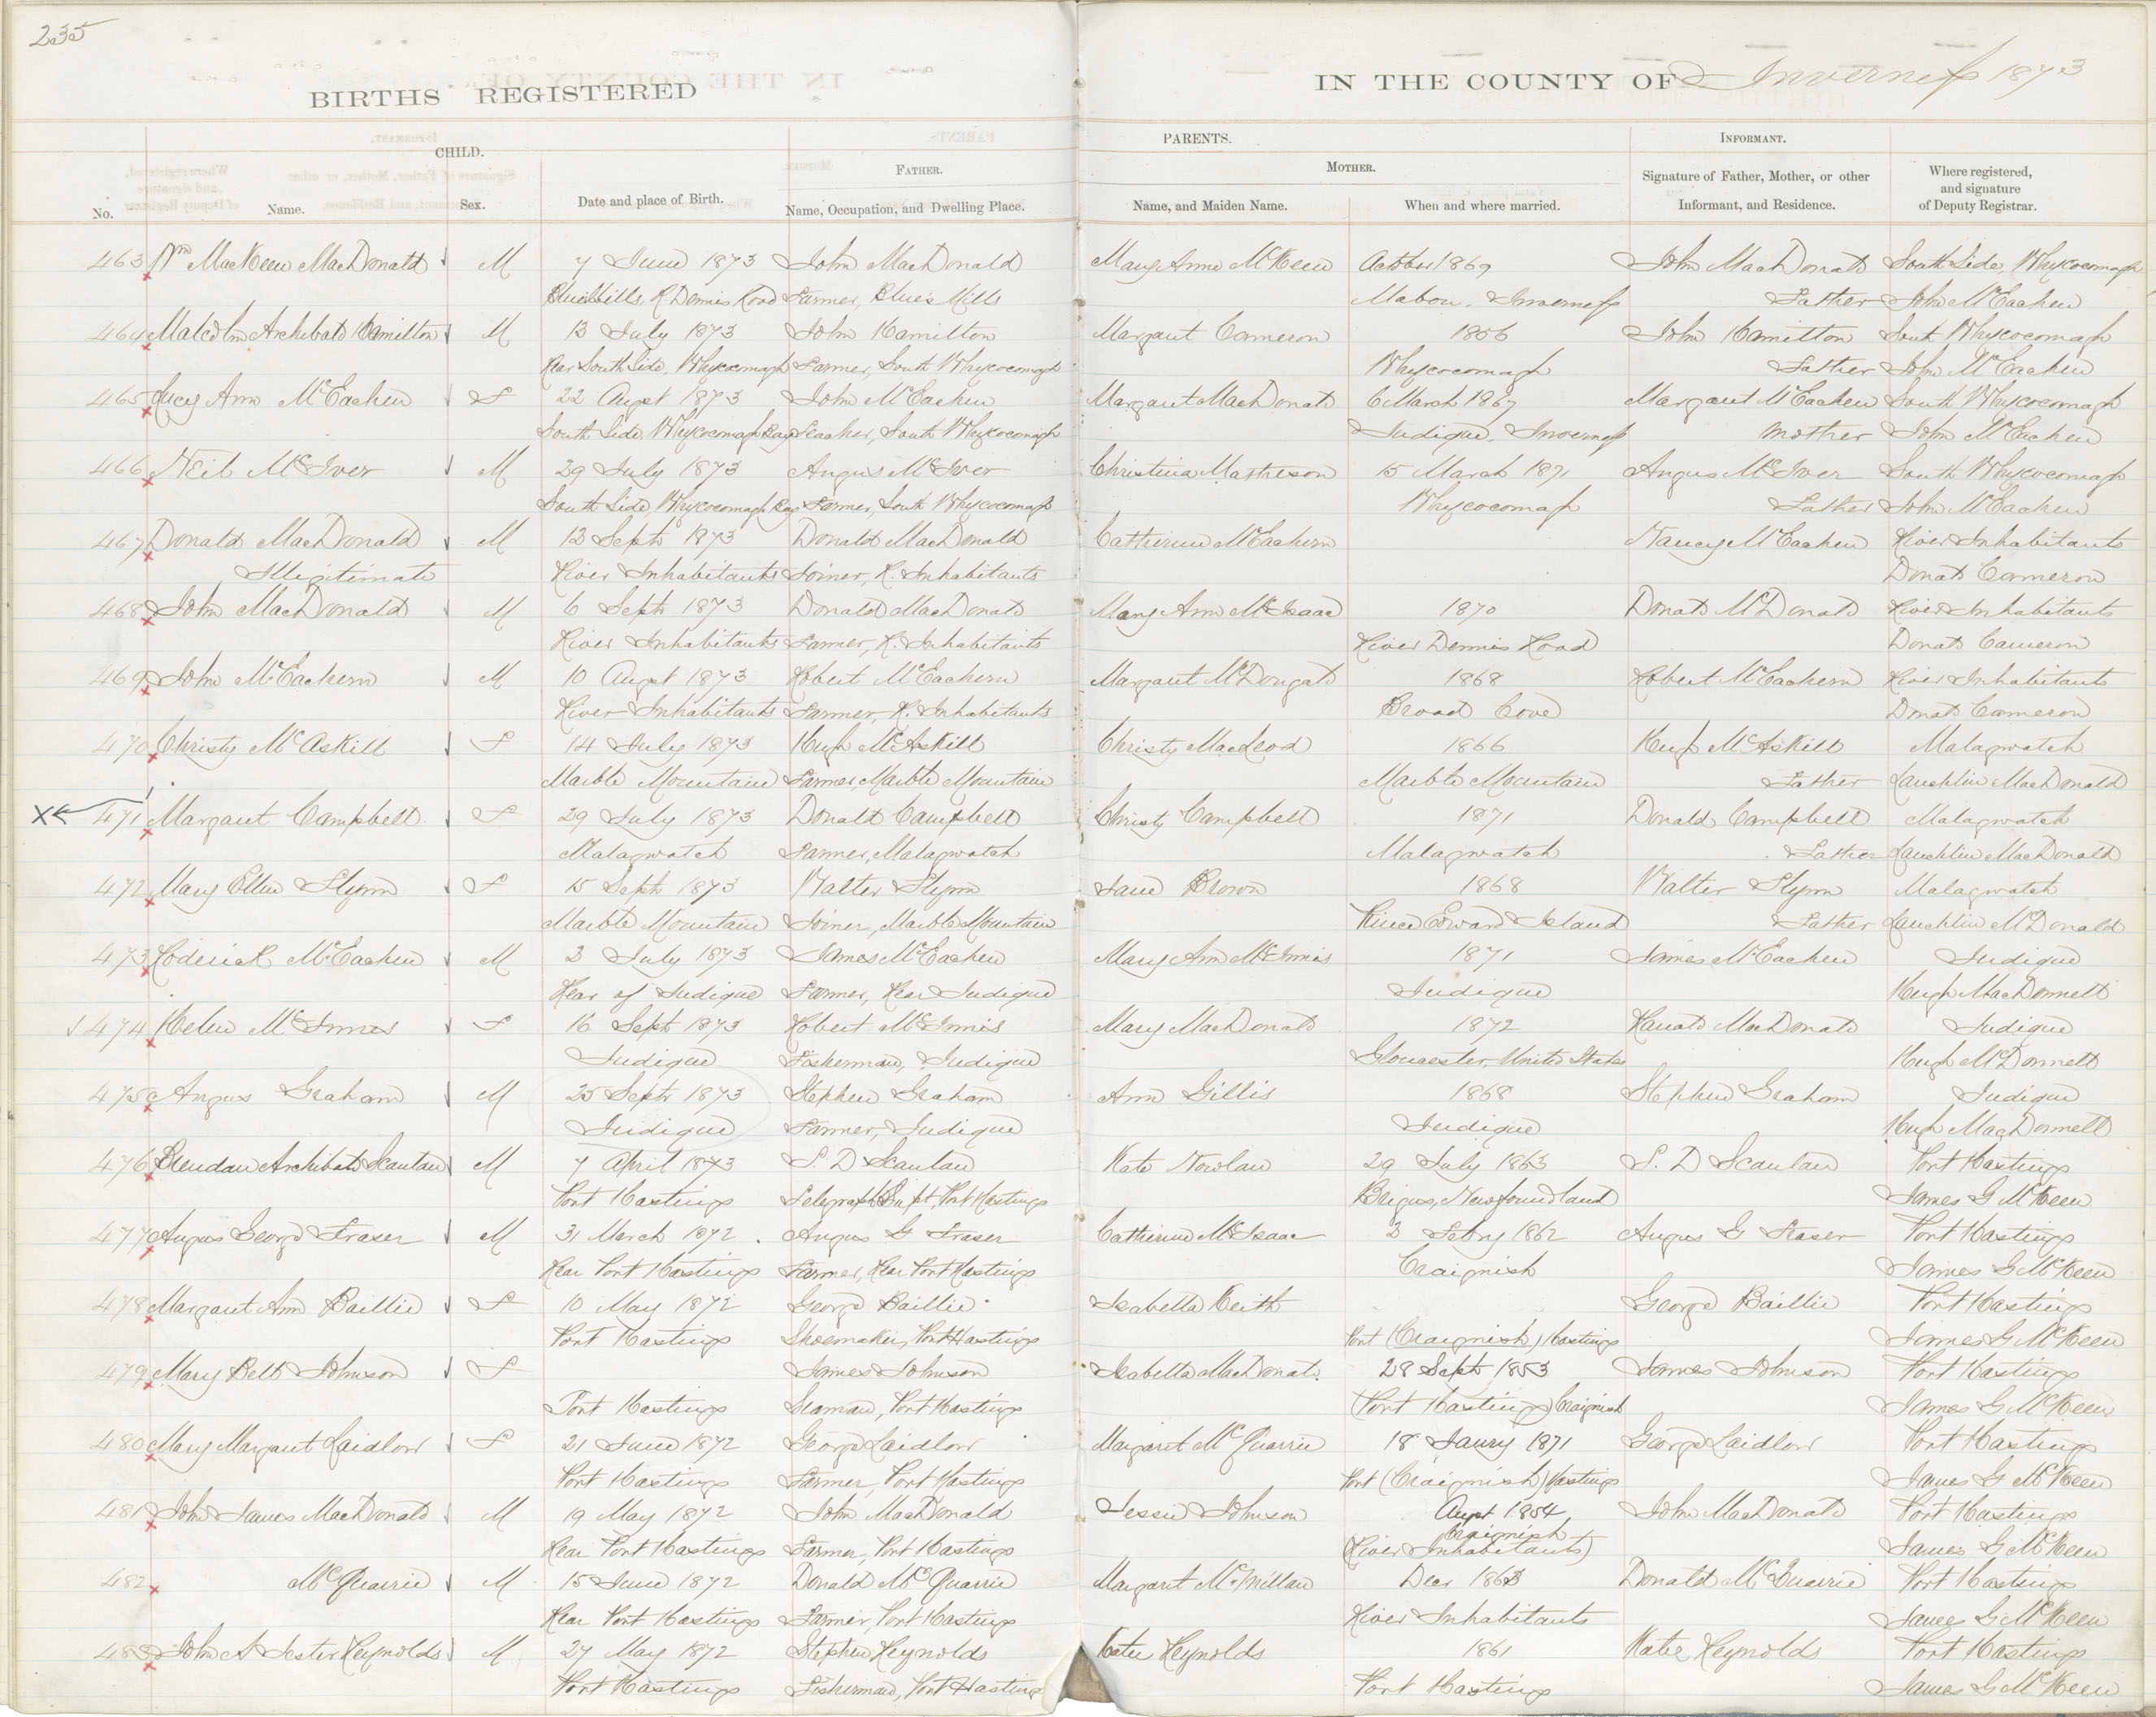 235
BIRTHS REGISTERED IN THE COUNTY OF Inverness 1873
CHILD. PARENTS. INFORMANT.
FATHER. MOTHER.
No. Name. Sex. Date and place of Birth. Name, Occupation, and Dwelling Place. Name, and Maiden Name. When and where married. Signature of Father, Mother, or other Informant, and Residence. Where registered, and signature of Deputy Registrar.
463 Wm MacKeen MacDonald M 7 June 1873 John MacDonald Mary Anne McKeen October 1869 John MacDonald South Side Whycocomagh
Blues Mills, R. Dennis Road Farmer, Blue's Mills Mabou, Inverness Father John McEachen
464 Malcolm Archibald Hamilton M 13 July 1873 John Hamilton Margaret Cameron 1856 John Hamilton South Whycocomagh
Rear South Side, Whycocomagh Farmer, South Whycocomagh Whycocomagh Father John McEachen
465 Lucy Ann McEachen F 22 Augst 1873 John McEachen Margaret MacDonald 6 March 1867 Margaret McEachen South Whycocomagh
South Side, Whycocomagh Bay Teacher, South Whycocomagh Judique, Inverness Mother John McEachen
466 Neil McIver M 29 July 1873 Angus McIver Christina Matheson 15 March 1871 Angus McIver South Whycocomagh
South Side Whycocomagh Bay Farmer, South Whycocomagh Whycocomagh Father John McEachen
467 Donald MacDonald M 12 Sept 1873 Donald MacDonald Catherine McEachern Nancy McEachen River Inhabitants
Illegitimate River Inhabitants Joiner, R. Inhabitants Donald Cameron
468 John MacDonald M 6 Sept 1873 Donald MacDonald Mary Ann McIsaac 1870 Donald McDonald River Inhabitants
River Inhabitants Farmer, R. Inhabitants River Dennis Road Donald Cameron
469 John McEachern M 10 Augst 1873 Robert McEachern Margaret McDougald 1868 Robert McEachern River Inhabitants
River Inhabitants Farmer, R. Inhabitants Broad Cove Donald Cameron
470 Christy McAskill F 14 July 1873 Hugh McAskill Christy MacLeod 1866 Hugh McAskill Malagwatch
Marble Mountain Farmer, Marble Mountain Marble Mountain Father Lauchlin MacDonald
X 471 Margaret Campbell F 29 July 1873 Donald Campbell Christy Campbell 1871 Donald Campbell Malagwatch
Malagwatch Farmer, Malagwatch Malagwatch Father Lauchlin MacDonald
472 Mary Ellen Flynn F 15 Sept 1873 Walter Flynn Jane Brown 1868 Walter Flynn Malagwatch
Marble Mountain Joiner, Marble Mountain Prince Edward Island Father Lauchlin McDonald
473 Roderick McEachen M 2 July 1873 James McEachen Mary Ann McInnis 1871 James McEachen Judique
Rear of Judique Farmer, Rear Judique Judique Hugh MacDonnell
474 Helen McInnes F 16 Sept 1873 Robert McInnis Mary MacDonald 1872 Ranald MacDonald Judique
Judique Fisherman, Judique Gloucester, United States Hugh McDonnell
475 Angus Graham M 25 Sept 1873 Stephen Graham Ann Gillis 1868 Stephen Graham Judique
Judique Farmer, Judique Judique Hugh MacDonnell
476 Brendan Archibald Scanlan M 7 April 1873 S. D Scanlan Kate Nowlan 29 July 1863 S. D Scanlan Port Hastings
Port Hastings Telegraph Supt, Port Hastings Brigus, Newfoundland James G McKeen
477 Angus George Fraser M 31 March 1872 Angus G Fraser Catherine McIsaac 3 Febry 1862 Angus G Fraser Port Hastings
Rear Port Hastings Farmer, Rear Port Hastings Craignish James G McKeen
478 Margaret Ann Baillie F 10 May 1872 George Baillie Isabella Keith George Baillie Port Hastings
Port Hastings Shoemaker, Port Hastings Port (Craignish) Hastings James G McKeen
479 Mary Bell Johnson F James Johnson Isabella MacDonald 28 Sept 1853 James Johnson Port Hastings
Port Hastings Seaman, Port Hastings (Port Hastings) Craignish James G McKeen
480 Mary Margaret Laidlow F 21 June 1872 George Laidlow Margaret McQuarrie 18 Janry 1871 George Laidlow Port Hastings
Port Hastings Farmer, Port Hastings Port (Craignish) Hastings James G McKeen
481 John James MacDonald M 19 May 1872 John MacDonald Jessie Johnson Augst 1854 John MacDonald Port Hastings
Craignish
Rear Port Hastings Farmer, Port Hastings (River Inhabitants) James G McKeen
482 McQuarrie M 15 June 1872 Donald McQuarrie Margaret McMillan Decr 1863 Donald McQuarrie Port Hastings
Rear Port Hastings Farmer, Port Hastings River Inhabitants James G McKeen
483 John A Lester Reynolds M 27 May 1872 Stephen Reynolds Katie Reynolds 1861 Katie Reynolds Port Hastings
Port Hastings Fisherman, Port Hastings Port Hastings James G McKeen